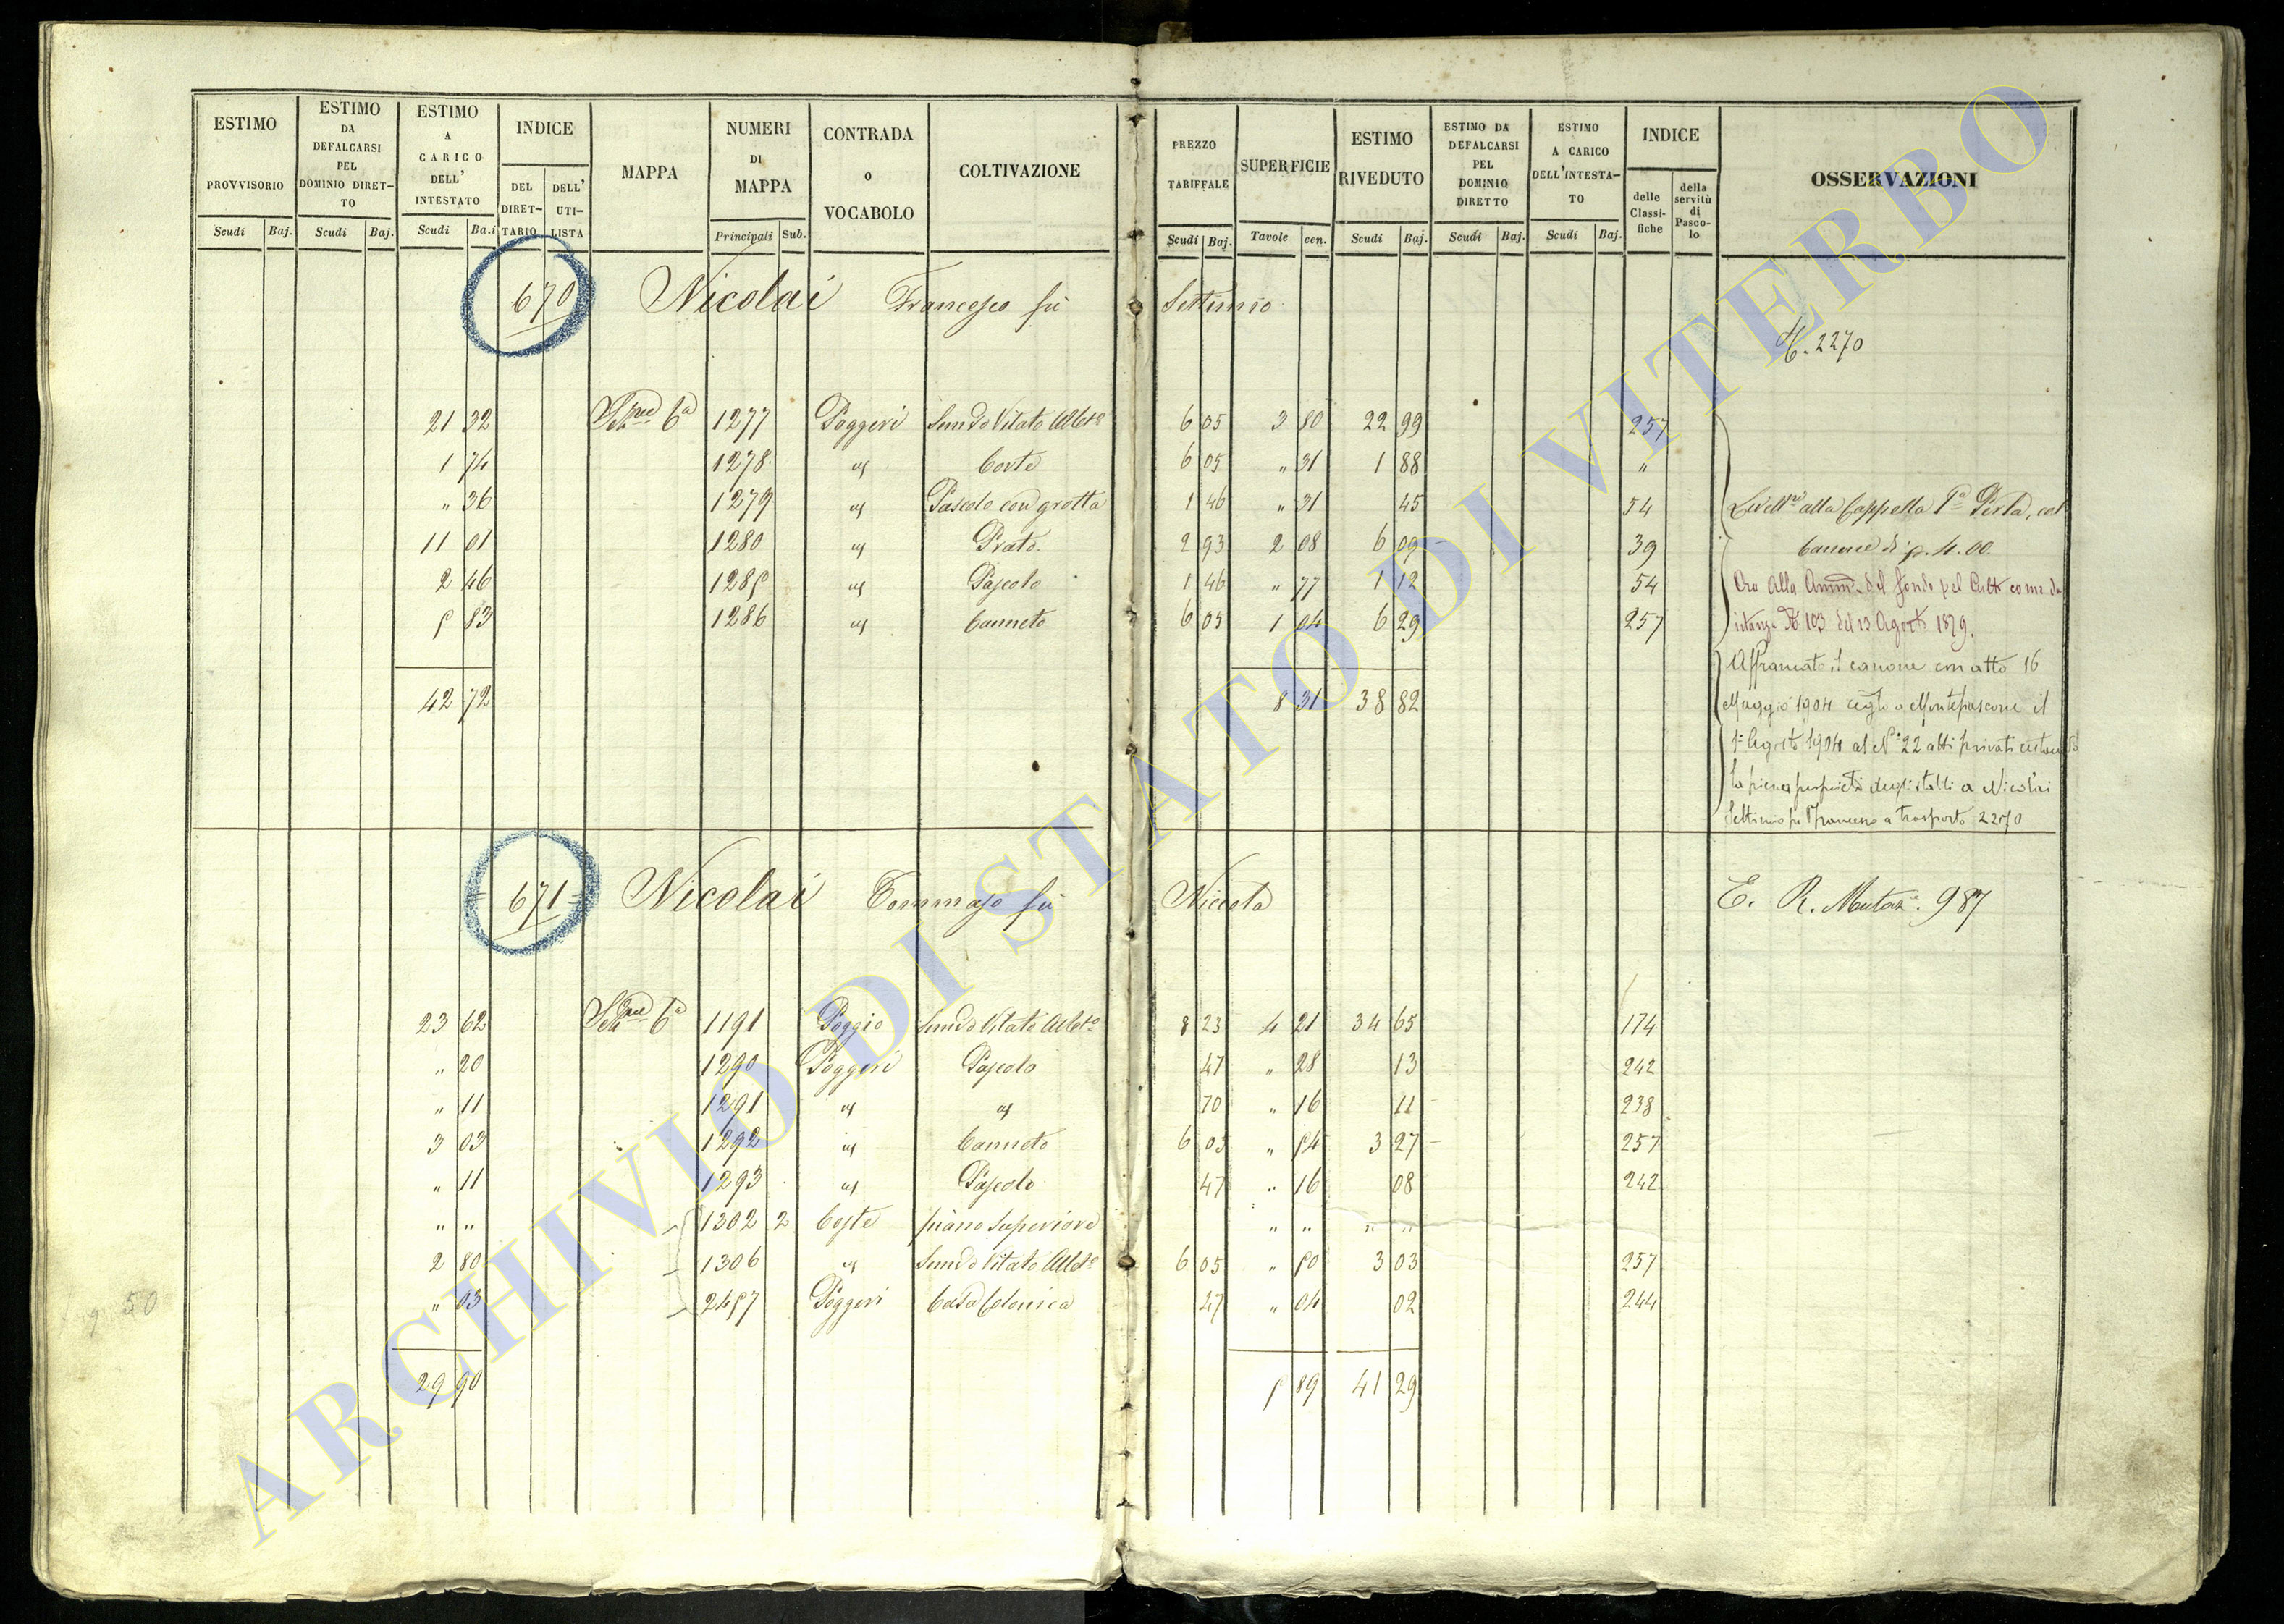 ESTIMO PROVVISORIO Scudi Baj.
ESTIMO DA DEFALCARSI PEL DOMINIO DIRET-TO Scudi Baj.
ESTIMO A CARICO DELL' INTESTATO Scudi Ba.i
INDICE DEL DIRET-TARIO DELL' UTI-LISTA
MAPPA
NUMERI DI MAPPA Principali Sub.
CONTRADA O VOCABOLO
COLTIVAZIONE
PREZZO TARIFFALE Scudi Baj.
SUPERFICIE Tavole cen.
ESTIMO RIVEDUTO Scudi Baj.
ESTIMO DA DEFALCARSI PEL DOMINIO DIRETTO Scudi Baj.
ESTIMO A CARICO DELL'INTESTA-TO Scudi Baj.
INDICE delle Classi-fiche della servitù di Pasco-lo
OSSERVAZIONI
670 Nicolai Francesco fù Settimio
2270
21 32 6a 1277 Poggeri Vitato 6 05 3 80 22 99 257
1 74 1278 " 6 05 " 31 1 88 "
" 36 1279 " Pascolo con grotta 1 46 " 31 45 54 alla Cappella
11 01 1280 " Prato 2 93 2 08 6 09 39 di 4.00
2 46 1285 " Pascolo 1 46 " 77 1 12 54 Ora alla del fondo pel Culto come da
5 83 1286 " Canneto 6 05 1 04 6 29 257 103 del 13 Agosto 1879.
Affrancato il canone con atto 16
42 72 8 31 38 82 Maggio 1904 a Montefiascone il
1° Agosto 1904 al N° 22 atti privati
la piena proprietà degli a Nicolai
Settimio fu Francesco a trasporto 2270
671 Nicolai Tommaso fù Niccola E. R. 987
23 62 6a 1191 Poggio Vitato 8 23 4 21 34 65 174
" 20 1290 Poggeri Pascolo 47 " 28 13 242
" 11 1291 " " 70 " 16 11 238
3 03 1292 " Canneto 6 05 " 54 3 27 257
" 11 1293 " Pascolo 47 " 16 08 242
" " 1302 2 Coste piano Superiore " " " "
2 80 1306 " Vitato 6 05 " 50 3 03 257
" 03 2457 Poggeri Casa Colonica 47 " 04 02 244
50
29 90 5 89 41 29
ARCHIVIO DI STATO DI VITERBO